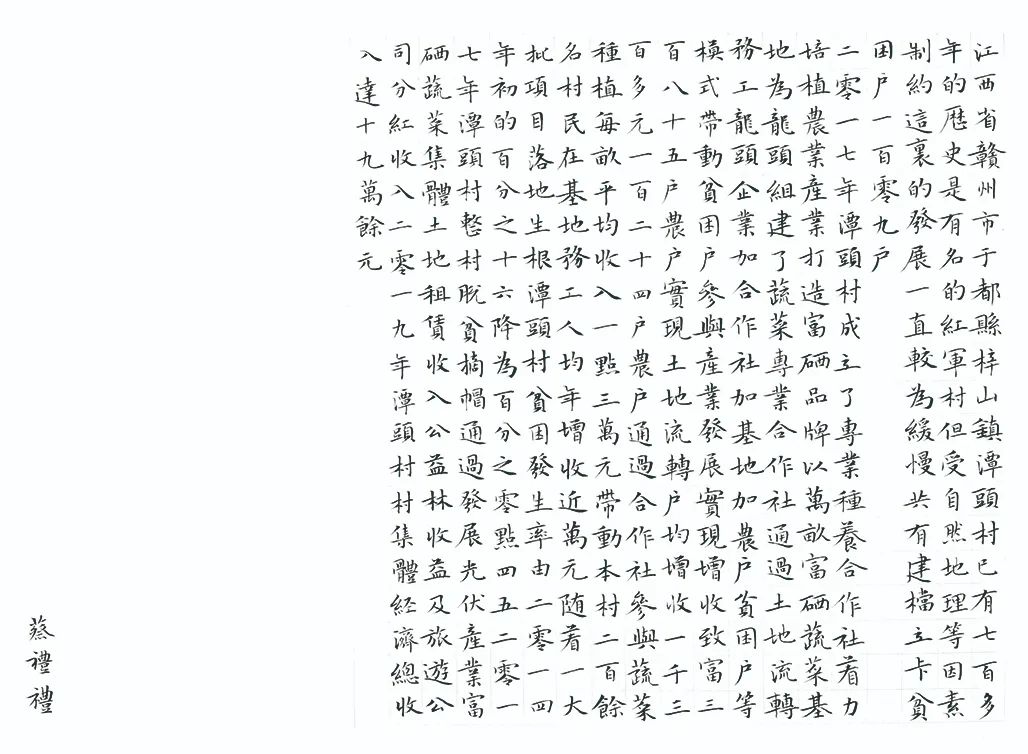 江西省贛州市于都縣梓山鎮潭頭村已有七百多
年的歷史是有名的紅軍村但受自然地理等因素
制約這裏的發展一直較為緩慢共有建檔立卡貧
困户一百零九户
二零一七年潭頭村成立了專業種養合作社着力
培植農業產業打造富硒品牌以萬畝富硒蔬菜基
地為龍頭組建了蔬菜專業合作社通過土地流轉
務工龍頭企業加合作社加基地加農户貧困户等
模式帶動貧困户參與產業發展實現增收致富三
百八十五户農户實現土地流轉户均增收一千三
百多元一百二十四户農户通過合作社參與蔬菜
種植每畝平均收入一點三萬元帶動本村二百餘
名村民在基地務工人均年增收近萬元随着一大
批項目落地生根潭頭村貧困發生率由二零一四
年初的百分之十六降為百分之零點四五二零一
七年潭頭村整村脫貧摘帽通過發展光伏產業富
硒蔬菜集體土地租賃收入公益林收益及旅遊公
司分紅收入二零一九年潭頭村村集體經濟總收
入達十九萬餘元
蔡禮禮